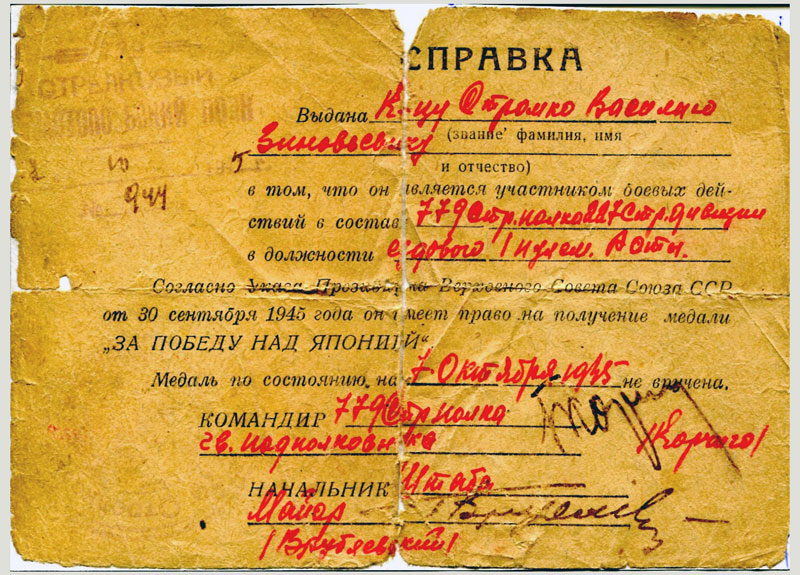 СПРАВКА
Выдана К-цу Стромко Василию
Зиновьевичу
(звание' фамилия, имя
и отчество)
в том, что он является участником боевых дей-
ствий в составе 779 Стр. полка 227 Стр. дивизии
в должности ездового 1 пулем. роты.
Согласно Указа Президиума Верховного Совета Союза ССР
от 30 сентября 1945 года он имеет право на получение медали
„ЗА ПОБЕДУ НАД ЯПОНИЕЙ“
Медаль по состоянию на 7 Октября 1945 не вручена.
КОМАНДИР 779 Стр полка
гв. подполковника
НАЧАЛЬНИК Штаба
Майор
/Врублевский/